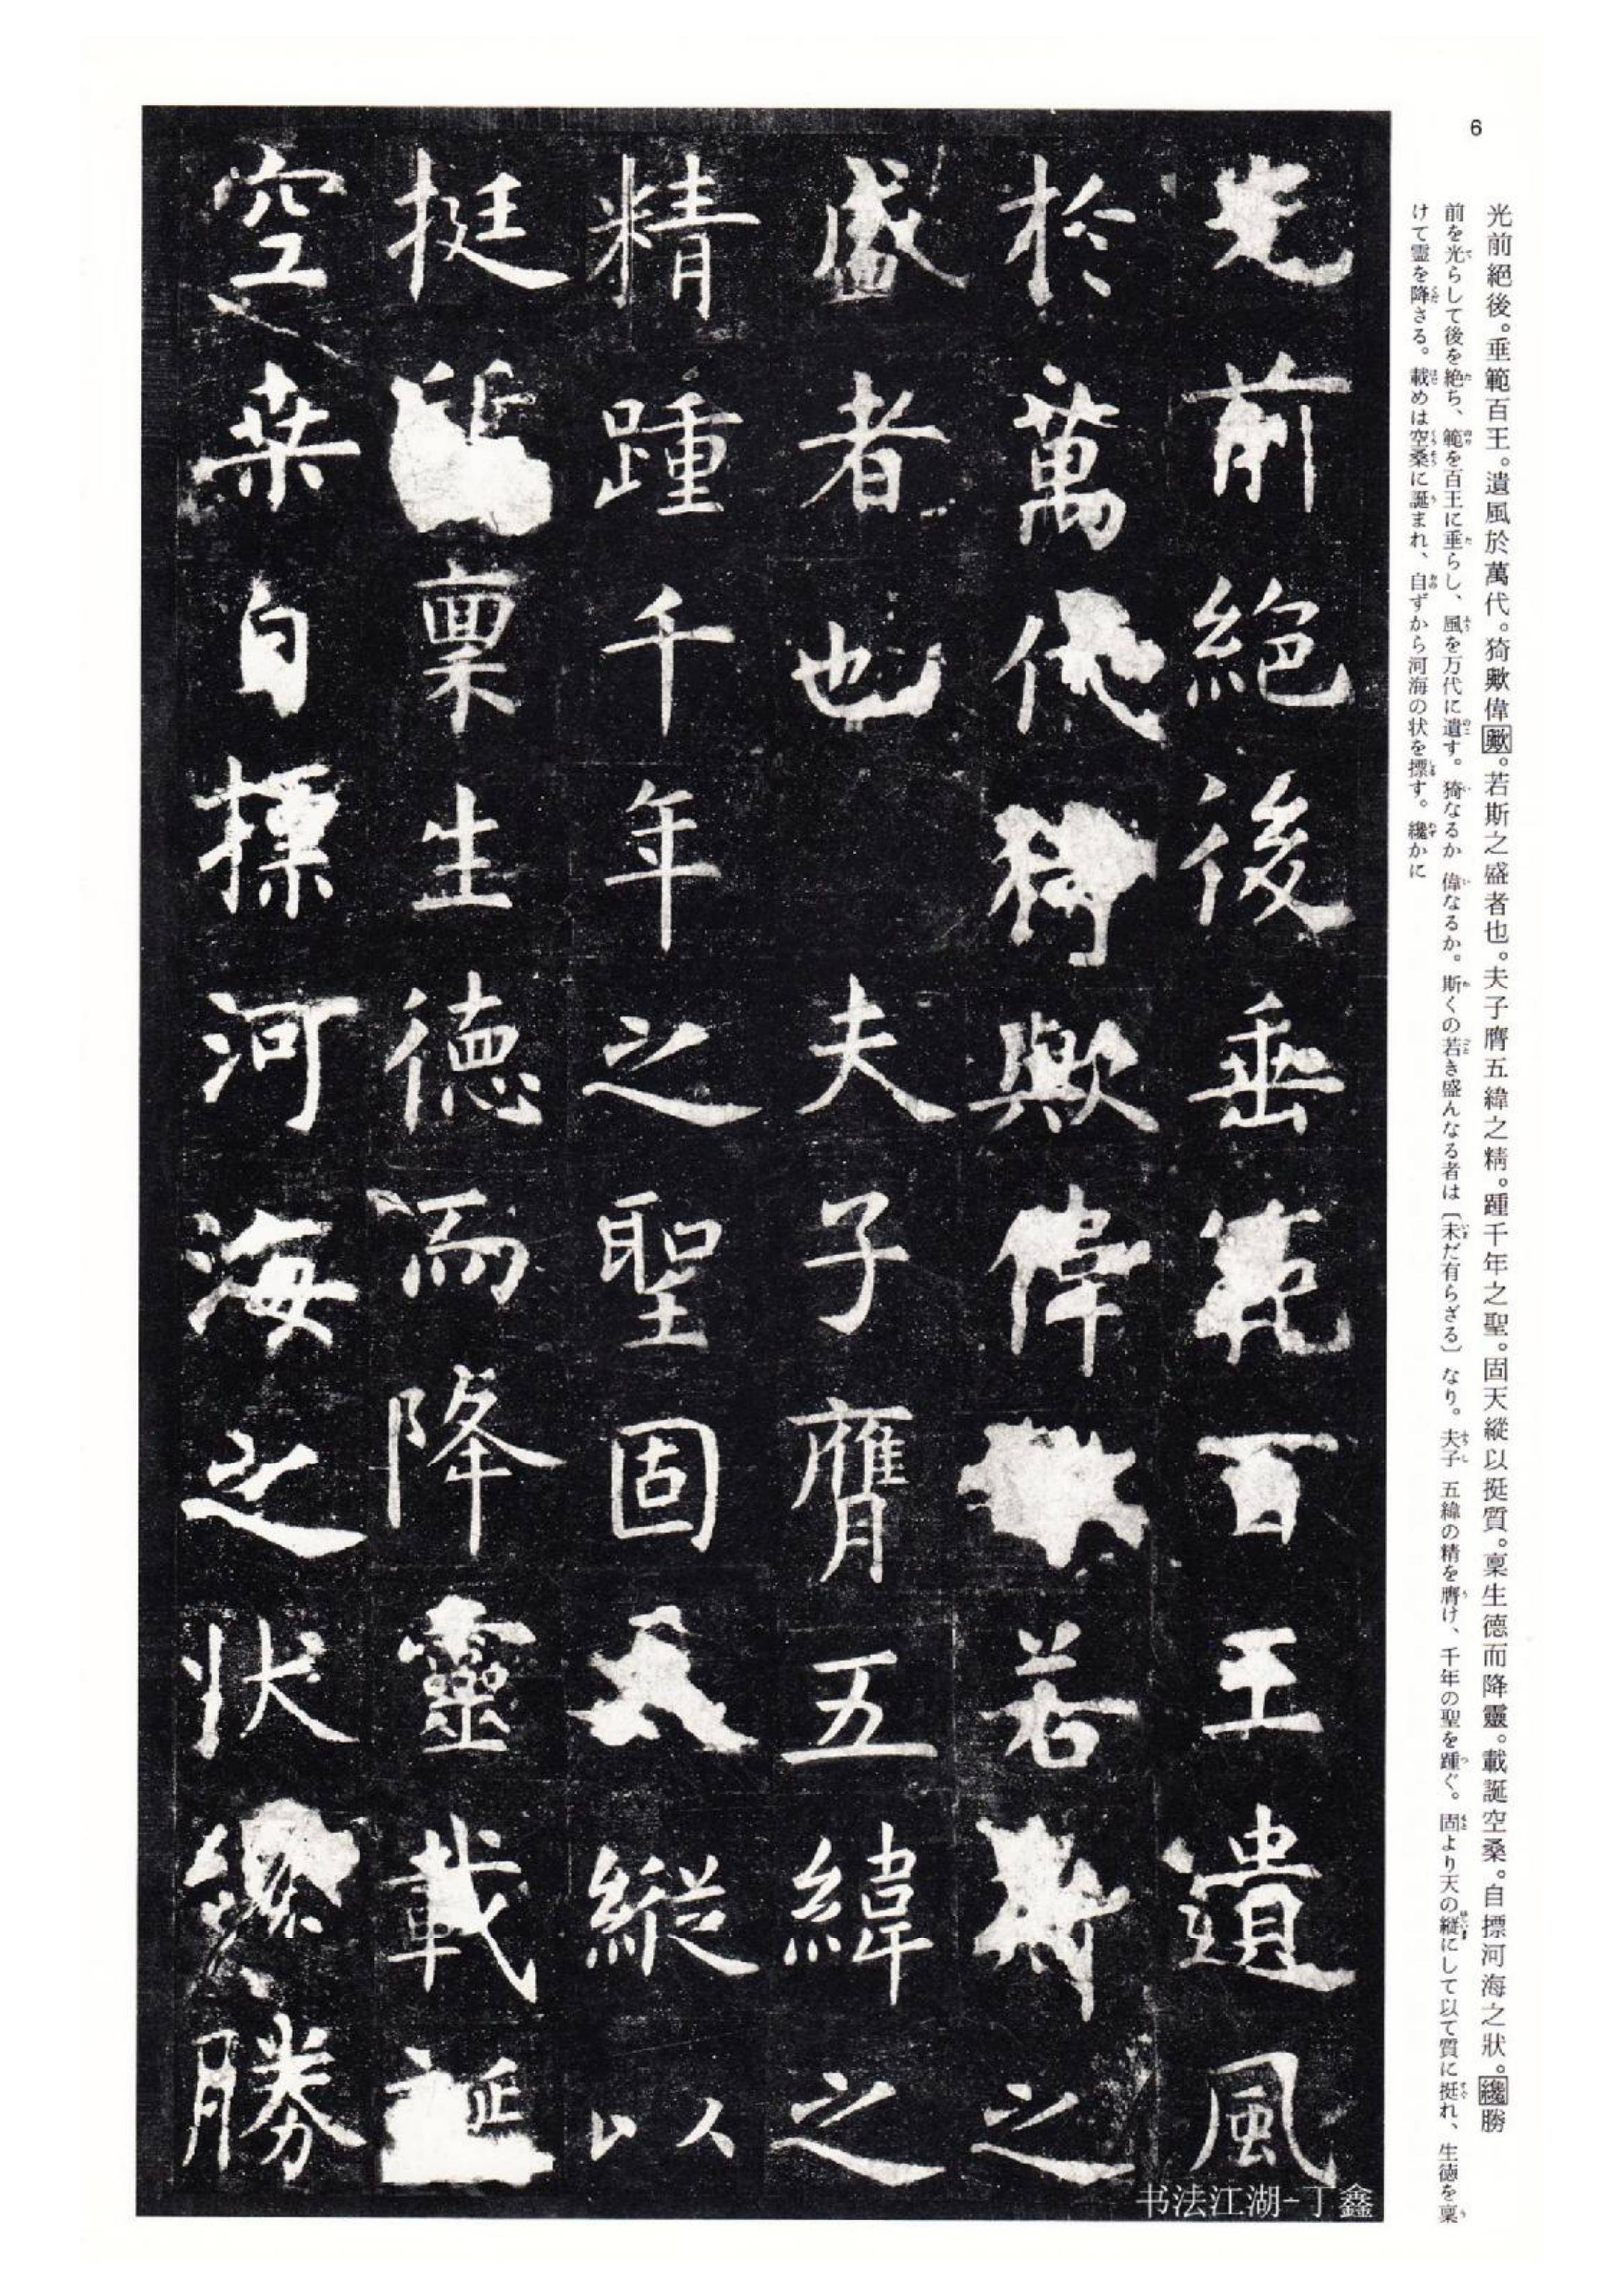 6
光前絕後。垂範百王。遺風於萬代。猗歟偉歟。若斯之盛者也。夫子膺五緯之精。踵千年之聖。固天縱以挺質。稟生德而降靈。載誕空桑。自摽河海之狀。纔勝
前を光らして後を絶ち、範を百王に垂らし、風を万代に遺す。猗なるか 偉なるか。斯くの若き盛んなる者は〔未だ有らざる〕なり。夫子 五緯の精を膺け、千年の聖を踵ぐ。固より天の縦にして以て質に挺れ、生徳を稟
けて霊を降さる。載めは空桑に誕まれ、自ずから河海の状を摽す。纔かに
光前絕後垂範百王遺風
於萬代猗歟偉若斯之
盛者也夫子膺五緯之
精踵千年之聖固天縱以
挺稟生德而降靈載誕
空桑自摽河海之狀纔勝
书法江湖-丁鑫